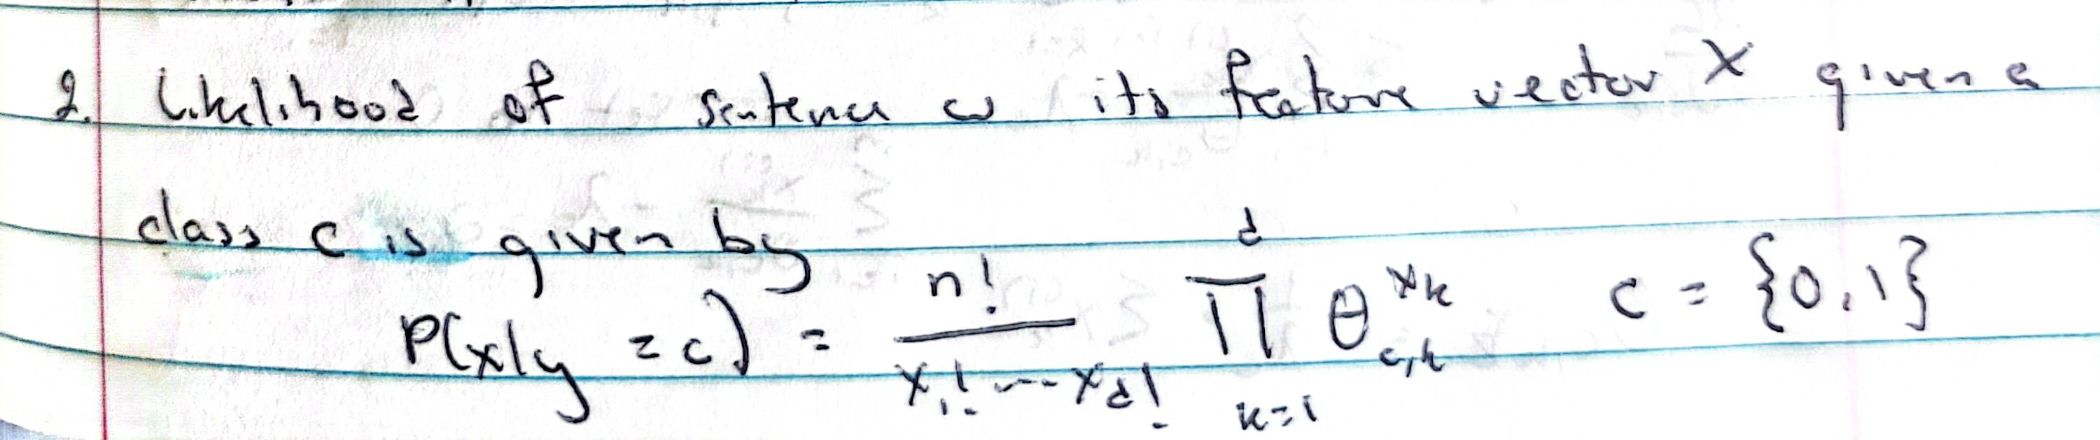 2. Likelihood of sentence w its feature vector X given a
class c is given by
P(x|y = c) = n! / x₁! --- x_d! ∏_{k=1}^{d} θ_{c,k}^{x_k} c = {0,1}